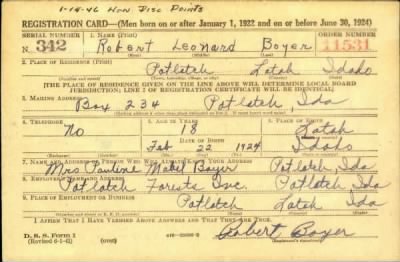 1-14-46 Hon Disc Points
REGISTRATION CARD—(Men born on or after January 1, 1922 and on or before June 30, 1924)
SERIAL NUMBER 1. NAME (Print) ORDER NUMBER
N 342 Robert Leonard Boyer 11531
(First) (Middle) (Last)
2. PLACE OF RESIDENCE (Print)
Potlatch Latah Idaho
[THE PLACE OF RESIDENCE GIVEN ON THE LINE ABOVE WILL DETERMINE LOCAL BOARD
JURISDICTION; LINE 2 OF REGISTRATION CERTIFICATE WILL BE IDENTICAL]
3. MAILING ADDRESS
Box 234 Potlatch, Ida
4. TELEPHONE 5. AGE IN YEARS 6. PLACE OF BIRTH
No 18 Latah
DATE OF BIRTH
Feb 22 1924 Idaho
7. NAME AND ADDRESS OF PERSON WHO WILL ALWAYS KNOW YOUR ADDRESS
Mrs Pauline Mabel Boyer Potlatch, Ida
8. EMPLOYER'S NAME AND ADDRESS
Potlatch Forests Inc. Potlatch Ida
9. PLACE OF EMPLOYMENT OR BUSINESS
Potlatch Latah Ida
I AFFIRM THAT I HAVE VERIFIED ABOVE ANSWERS AND THAT THEY ARE TRUE.
D. S. S. Form 1
(Revised 6-1-42) (over)
Robert Boyer